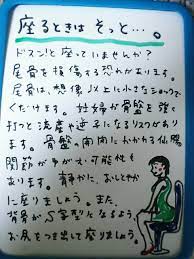 座るときは そっと…。
ドスン!と座っていませんか?
尾骨を損傷する恐れがあります。
尾骨は、想像以上に小さなショックで
くだけます。妊婦が骨盤を強く
打つと流産や逆子になるリスクがあり
ます。骨盤の
関節が
可能性も
あります。静かに、おしとやか
に座りましょう。また、
背骨がS字型になるよう
お尻をつき出して座りましょう。